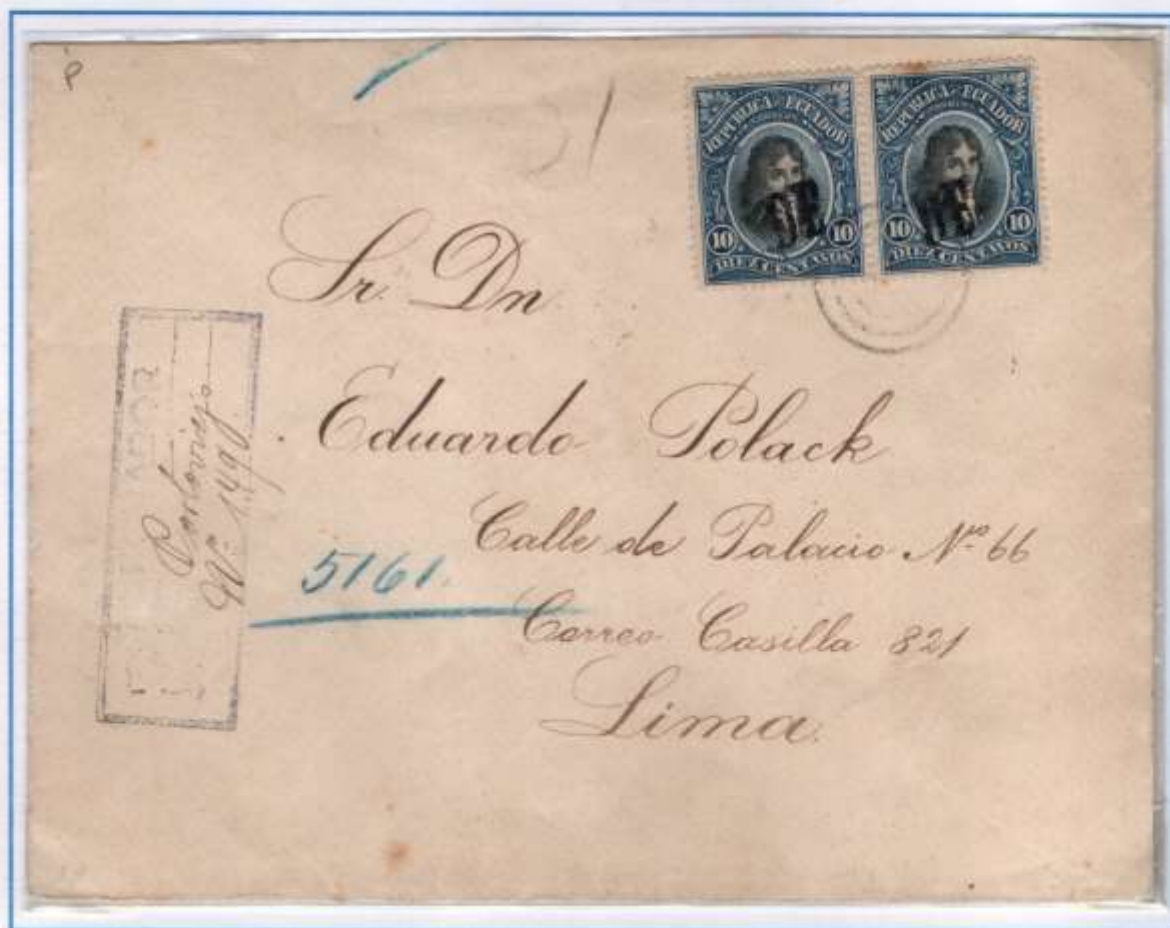 REPUBLICA DEL ECUADOR
10 10
DIEZ CENTAVOS
REPUBLICA DEL ECUADOR
10 10
DIEZ CENTAVOS
Sr. Dn
Eduardo Polack
Calle de Palacio Nº 66
Correo Casilla 821
Lima.
5161.